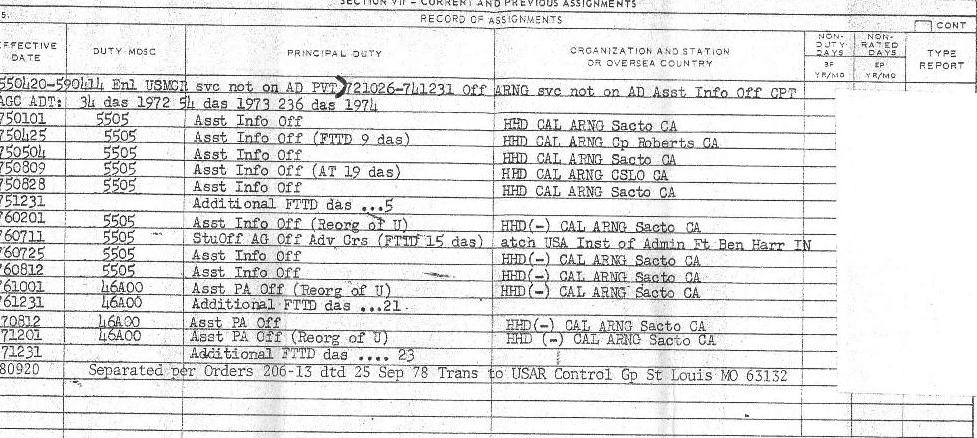 SECTION VII - CURRENT AND PREVIOUS ASSIGNMENTS
5. RECORD OF ASSIGNMENTS CONT
EFFECTIVE DATE DUTY MOSC PRINCIPAL DUTY ORGANIZATION AND STATION OR OVERSEA COUNTRY NON-DUTY DAYS BF YR/MO NON-RATED DAYS EP YR/MO TYPE REPORT
550420-590414 Enl USMCR svc not on AD PVT)721026-741231 Off ARNG svc not on AD Asst Info Off CPT
AGC ADT: 34 das 1972 54 das 1973 236 das 1974
750101 5505 Asst Info Off HHD CAL ARNG Sacto CA
750425 5505 Asst Info Off (FTTD 9 das) HHD CAL ARNG Cp Roberts CA
750504 5505 Asst Info Off HHD CAL ARNG Sacto CA
750809 5505 Asst Info Off (AT 19 das) HHD CAL ARNG CSLO CA
750828 5505 Asst Info Off HHD CAL ARNG Sacto CA
751231 Additional FTTD das ...5
760201 5505 Asst Info Off (Reorg of U) HHD(-) CAL ARNG Sacto CA
760711 5505 StuOff AG Off Adv Crs (FTTD 15 das) atch USA Inst of Admin Ft Ben Harr IN
760725 5505 Asst Info Off HHD(-) CAL ARNG Sacto CA
760812 5505 Asst Info Off HHD(-) CAL ARNG Sacto CA
761001 46A00 Asst PA Off (Reorg of U) HHD(-) CAL ARNG Sacto CA
761231 Additional FTTD das ...21
70812 46A00 Asst PA Off HHD(-) CAL ARNG Sacto CA
71201 46A00 Asst PA Off (Reorg of U) HHD (-) CAL ARNG Sacto CA
71231 Additional FTTD das .... 23
80920 Separated per Orders 206-13 dtd 25 Sep 78 Trans to USAR Control Gp St Louis MO 63132